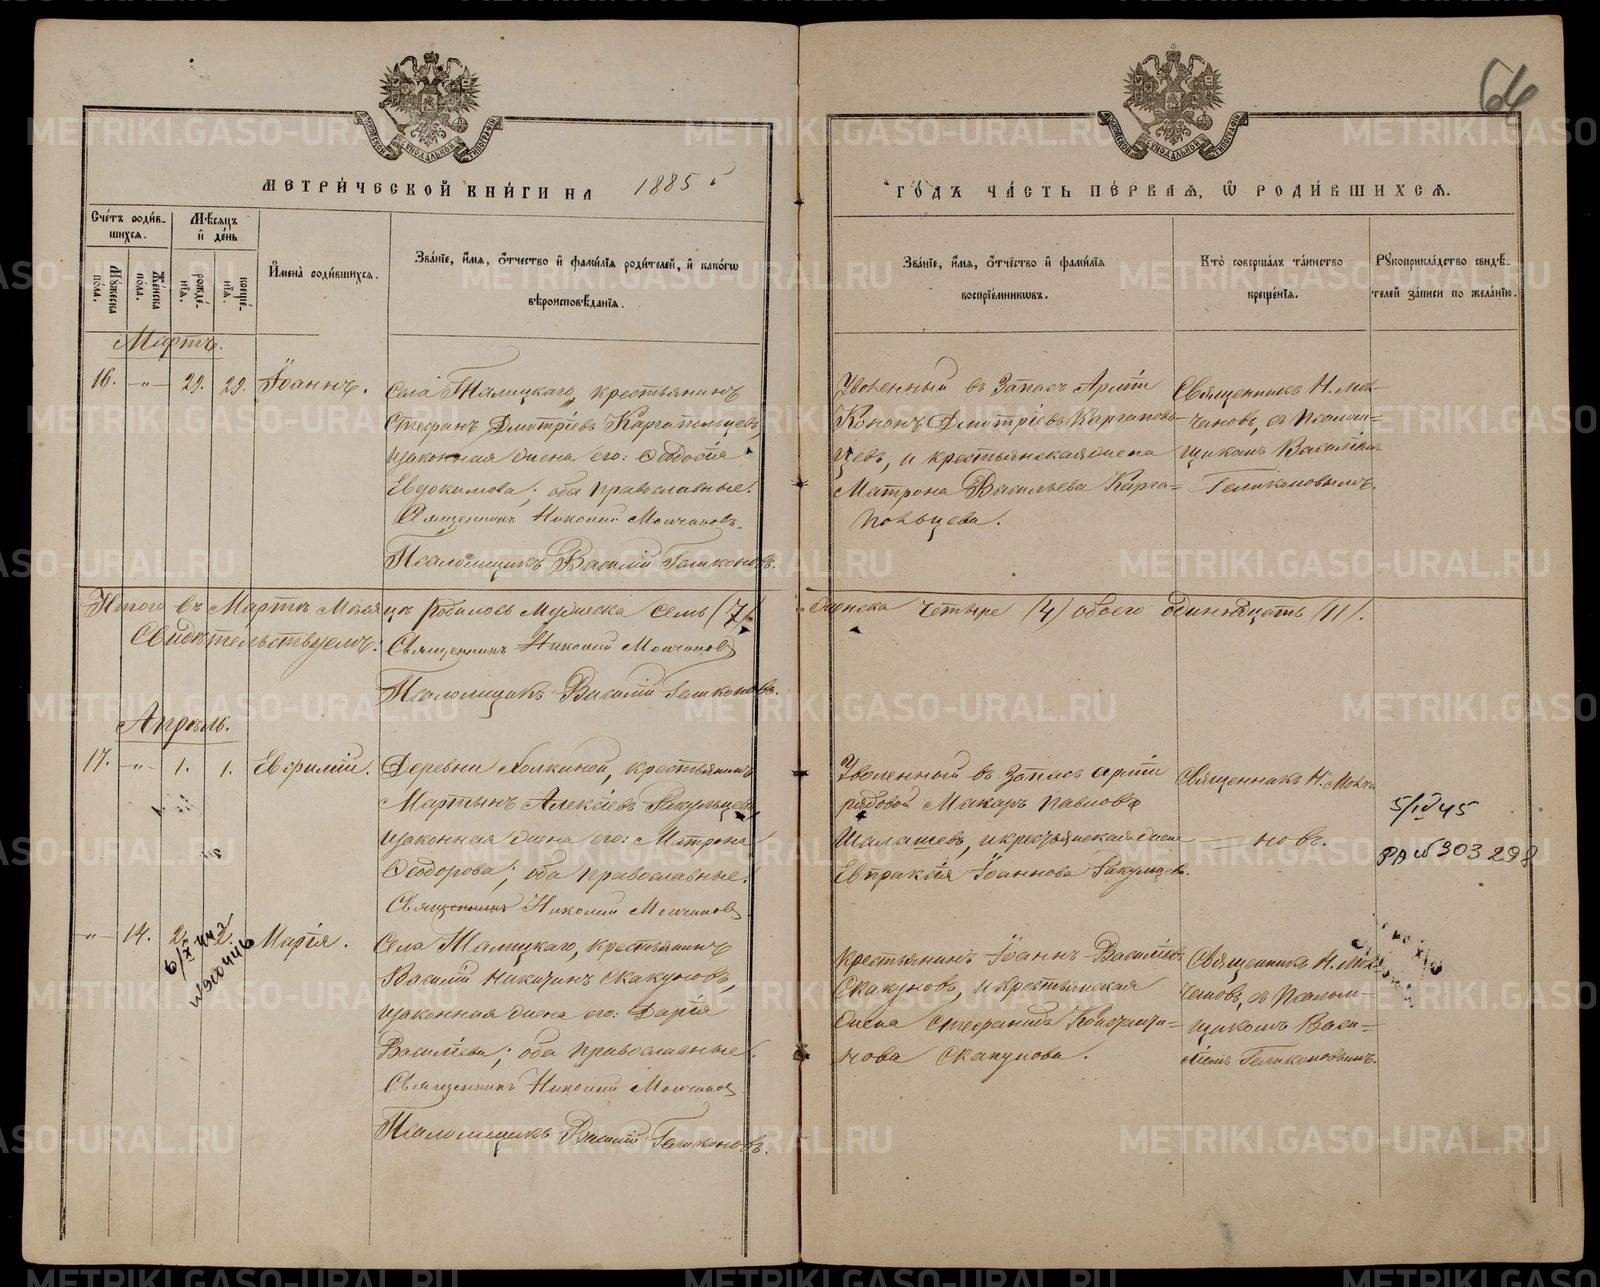 МЕТРИ́ЧЕСКОЙ КНИ́ГИ НА 1885
ГО́ДЪ ЧА́СТЬ ПЕ́РВАЯ, Ѡ҆ РОДИ́ВШИХСЯ.
64
Сче́тъ роди́в-
шихся.
Мѣ́сяцъ
и҆ де́нь
Мꙋ́жеска
по́ла.
Же́нска
по́ла.
рожде́-
нїя.
креще́-
нїя.
И҆мена̀ роди́вшихся.
Зва́нїе, и҆́мя, ѻ҆́тчество и҆ фами́лїя роди́телей, и҆ како́гѡ
вѣроисповѣ́данїя.
Зва́нїе, и҆́мя, ѻ҆́тчество и҆ фами́лїя
воспрїе́мникѡвъ.
Кто̀ соверша́лъ та́инство
креще́нїя.
Рꙋкоприкла́дство свидѣ́-
телей за́писи по жела́нїю.
Мартъ.
16. -„- 29. 29. Іоаннъ.
Села Талицкаго, крестьянинъ
Стефанъ Дмитріевъ Каргапольцевъ,
и законная жена его: Ѳеодосія
Евдокимова; оба православные.
Священникъ Николай Молчановъ.
Псаломщикъ Василій Геликоновъ.
Уволенный въ Запасъ Арміи
Кононъ Дмитріевъ Каргаполь-
цевъ, и крестьянская жена
Матрона Васильева Карга=
польцева.
Священникъ Н. Мол-
чановъ, съ Псалом=
щикомъ Василіемъ
Геликоновымъ.
Итого въ Мартѣ Месяцѣ родилось Мужеска Семь (7)
женска четыре (4) обоего одинадцать (11).
Свидѣтельствуемъ: Священникъ Николай Молчановъ
Псаломщикъ Василій Геликоновъ.
Апрѣль.
17. -„- 1. 1. Евфимій.
Деревни крестьянинъ
Мартынъ Алексѣевъ Бакульцевъ,
и законная жена его: Матрона
Ѳеодорова; оба православные.
Священникъ Николай Молчановъ
Уволенный въ запасъ арміи
рядовой Макаръ Павловъ
Шалашевъ, и крестьянская жена
Евпраксія Іоаннова Бакульцева.
Священникъ Н. Молча
— новъ.
5/IV 45
РА № 303298
-„- 14. 2. 2. Марія.
6/X 442
Села Талицкаго, крестьянинъ
Василій Никитинъ Скакуновъ,
и законная жена его: Дарія
Василіева; оба православные.
Священникъ Николай Молчановъ
Псаломщикъ Василій Геликоновъ.
Крестьянинъ Іоаннъ Василіевъ
Скакуновъ, и крестьянская
жена Стефанида Константи=
нова Скакунова.
Священникъ Н. Мол-
чановъ, съ Псалом-
щикомъ Васи=
ліемъ Геликоновымъ.